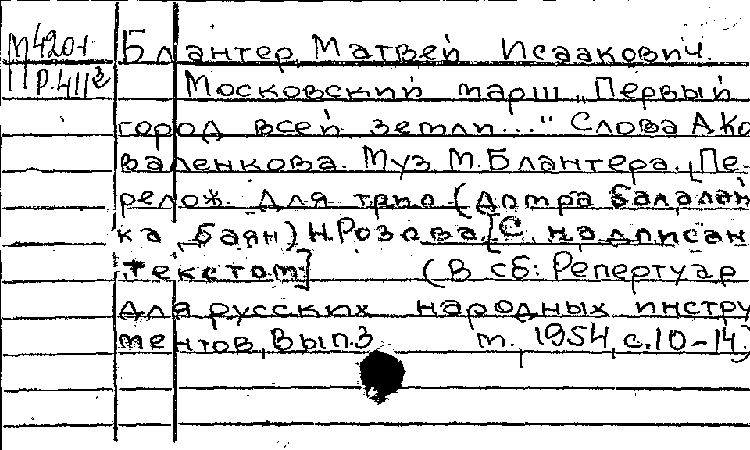 М420+ Блантер, Матвей Исаакович.
Пр.411³ Московский марш „Первый
город всей земли..." Слова А Ко
валенкова. Муз М.Блантера. [Пе-
релож. для трио (домра балалай
ка, баян) Н.Розова.[С надписан
текстом] (В сб: Репертуар
для русских народных инстру
ментов, Вып.3 м., 1954, с.10-14)